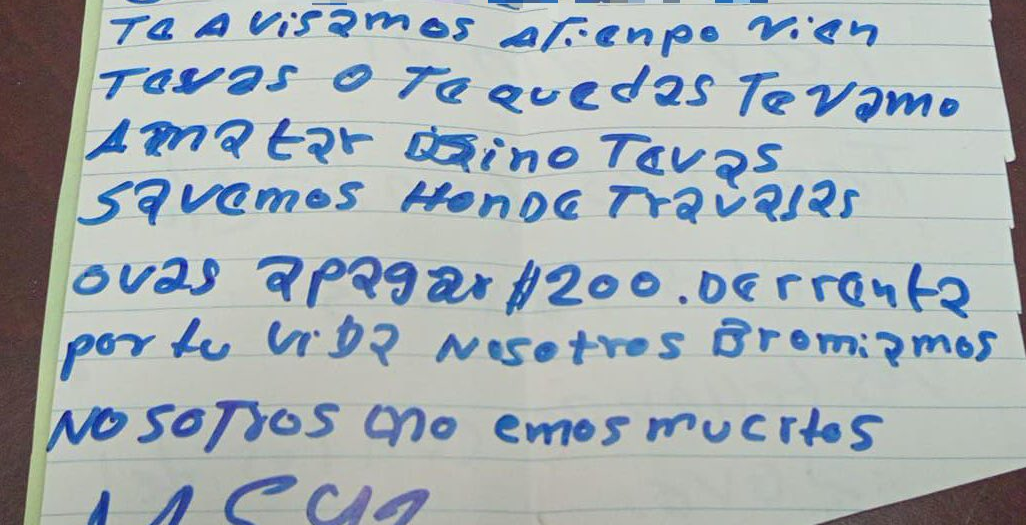 Te Avisamos Atienpo vien
Tevas o Te quedas Te vamo
Amatar sino Tevas
savemos Honde Travajas
ovas apagar $200. De rrenta
por tu viDa Nosotros Bromiamos
NosoTros no emos muertos